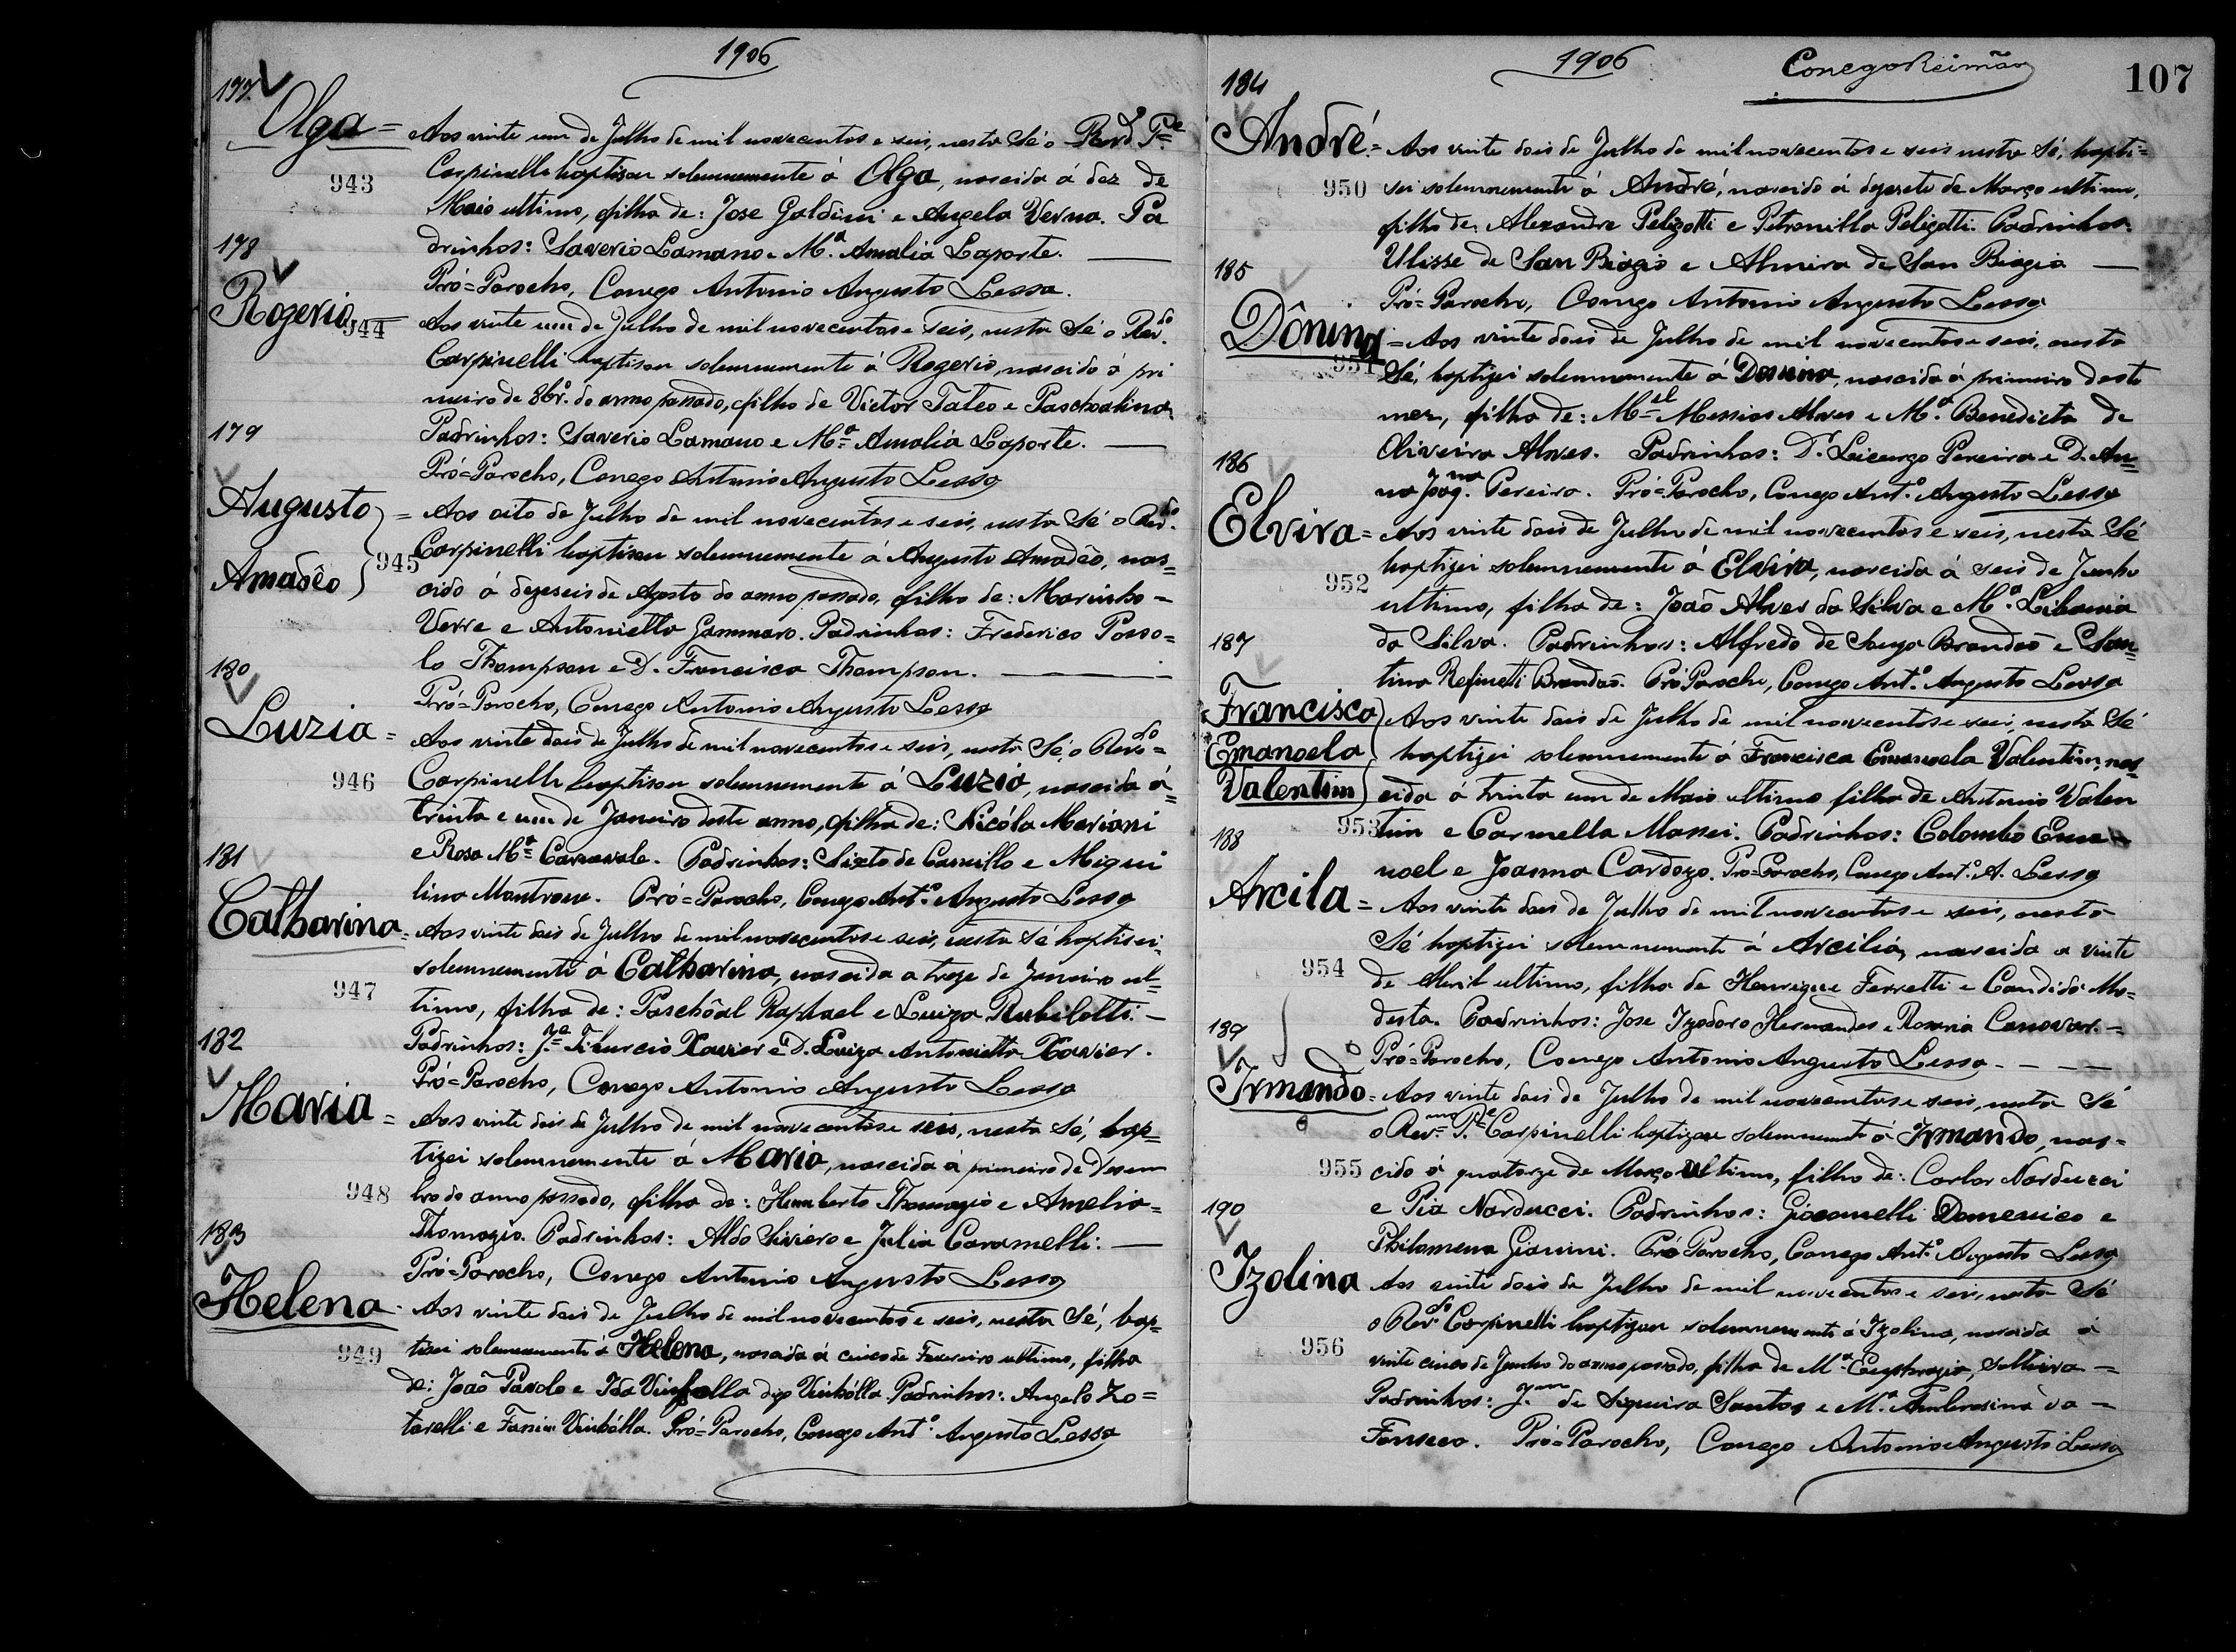 1906
177
Olga = Aos vinte um de Julho de mil novecentos e seis, nesta Sé o Revd. Pe.
943 Carpinelli baptisou solemnemente á Olga, nascida á dez de
Maio ultimo, filha de: Jose Galdini e Angela Verna. Pa
178 drinhos: Saverio Lamano e Ma. Amalia Laporte.
Pró=Parocho, Conego Antonio Augusto Lessa.
Rogerio 944 Aos vinte um de Julho de mil novecentos e seis, nesta Sé o Revdo.
Carpinelli baptisou solemnemente á Rogerio, nascido á pri
meiro de 8br.o do anno passado, filho de Victor Tateo e Paschoalina
179 Padrinhos: Saverio Lamano e Ma. Amalia Laporte.
Pró=Parocho, Conego Antonio Augusto Lessa
Augusto = Aos oito de Julho de mil novecentos e seis, nesta Sé o Revdo.
Amadêo 945 Carpinelli baptisou solemnemente á Augusto Amadêo, nas=
cido á dezeseis de Agosto do anno passado, filho de: Marinho=
Verre e Antonietta Gammaro. Padrinhos: Frederico Posso=
180 lo Thompson e D. Francisca Thompson.
Pró=Parocho, Conego Antonio Augusto Lessa
Luzia = Aos vinte dois de Julho de mil novecentos e seis, nesta Sé, o Revdo=
946 Carpinelli baptisou solemnemente á Luzia, nascida á=
trinta e um de Janeiro deste anno, filha de: Nicóla Mariani
181 e Rosa Ma. Carnavale. Padrinhos: Sixto de Camillo e Migui
lina Montrone. Pró=Parocho, Conego Anto. Augusto Lessa
Catharina = Aos vinte dois de Julho de mil novecentos e seis, nesta Sé baptisei
solemnemente á Catharina, nascida a treze de Janeiro ul=
947 timo, filha de: Paschôal Raphael e Luiza Rubilotti.
182 Padrinhos: Je. Tiburcio Xavier e D. Luiza Antonietta Xavier.
Pró=Parocho, Conego Antonio Augusto Lessa
Maria = Aos vinte dois de Julho de mil novecentos e seis, nesta Sé, bap=
tizei solemnemente á Maria, nascida á primeiro de Dezem
948 bro do anno passado, filha de: Humberto Thomazio e Amelia=
183 Thomazio. Padrinhos: Aldo Siviero e Julia Caramelli.
Pró=Parocho, Conego Antonio Augusto Lessa
Helena - Aos vinte dois de Julho de mil novecentos e seis, nesta Sé, bap=
949 tisei solemnemente á Helena, nascida á cinco de Fevereiro ultimo, filha
de: João Parolo e Ida digo Vinhólla Padrinhos: Angelo Zo=
tarelli e Vinhólla. Pró=Parocho, Conego Anto. Augusto Lessa
1906 Conego Reimão 107
184
André = Aos vinte dois de Julho de mil novecentos e seis nesta Sé, bapti=
950 sei solemnemente á André, nascido á dezesete de Março ultimo,
filho de Alexandre Pelizotti e Petronilla Pelizotti. Padrinhos:
185 Ulisse de San Biagio e Almira de San Biagio
Pró=Parocho, Conego Antonio Augusto Lessa
Dônina = Aos vinte dois de Julho de mil novecentos e seis, nesta
951 Sé, baptizei solemnemente á Donina, nascida á primeiro deste
mez, filha de: Mel. Messias Alves e Ma. Benedicta de
186 Oliveira Alves. Padrinhos: Dr. Licurgo Pereira e D. An=
na Joaqna. Pereira. Pró=Parocho, Conego Anto. Augusto Lessa
Elvira = Aos vinte dois de Julho de mil novecentos e seis, nesta Sé
952 baptizei solemnemente á Elvira, nascida á seis de Junho
ultimo, filha de: João Alves da Silva e Ma. Libania
187 da Silva. Padrinhos: Alfredo de Souza Brandão e San=
tina Refinetti Brandão. Pró Parocho, Conego Anto. Augusto Lessa
Francisca Aos vinte dois de Julho de mil novecentos e seis, nesta Sé
Emanoela baptizei solemnemente á Francisca Emanoela Valentim, nas=
Valentim cida á trinta um de Maio ultimo filha de Antonio Valen
188 953 tim e Carmella Massei. Padrinhos: Colombo Ema
noel e Joanna Cardozo. Pró=Parocho, Conego Anto. A. Lessa
Arcila = Aos vinte dois de Julho de mil novecentos e seis, nesta
Sé baptizei solemnemente á Arcilia, nascida a vinte
954 de Abril ultimo, filha de Henrique Ferretti e Candida Mo=
189 desta. Padrinhos: Jose Izodoro Hernandes e Rosaria Canovar.=
Pró=Parocho, Conego Antonio Augusto Lessa
Irmando = Aos vinte dois de Julho de mil novecentos e seis, nesta Sé
o Revmo. Pe. Carpinelli baptizou solemnemente á Irmando, nas=
955 cido á quatorze de Março ultimo, filho de: Carlos Narducci
190 e Pia Narducci. Padrinhos: Giacomelli Domenico e
Philomena Gianini. Pró Parocho, Conego Anto. Augusto Lessa
Izolina Aos vinte dois de Julho de mil novecentos e seis, nesta Sé
o Revdo. Carpinelli baptizou solemnemente á Izolina, nascida á
956 vinte cinco de Junho do anno passado, filha de Ma. Euphrazia, solteira=
Padrinhos: Jm. de Siqueira Santos e Ma. Ambrosina da=
Fonseca. Pró=Parocho, Conego Antonio Augusto Lessa